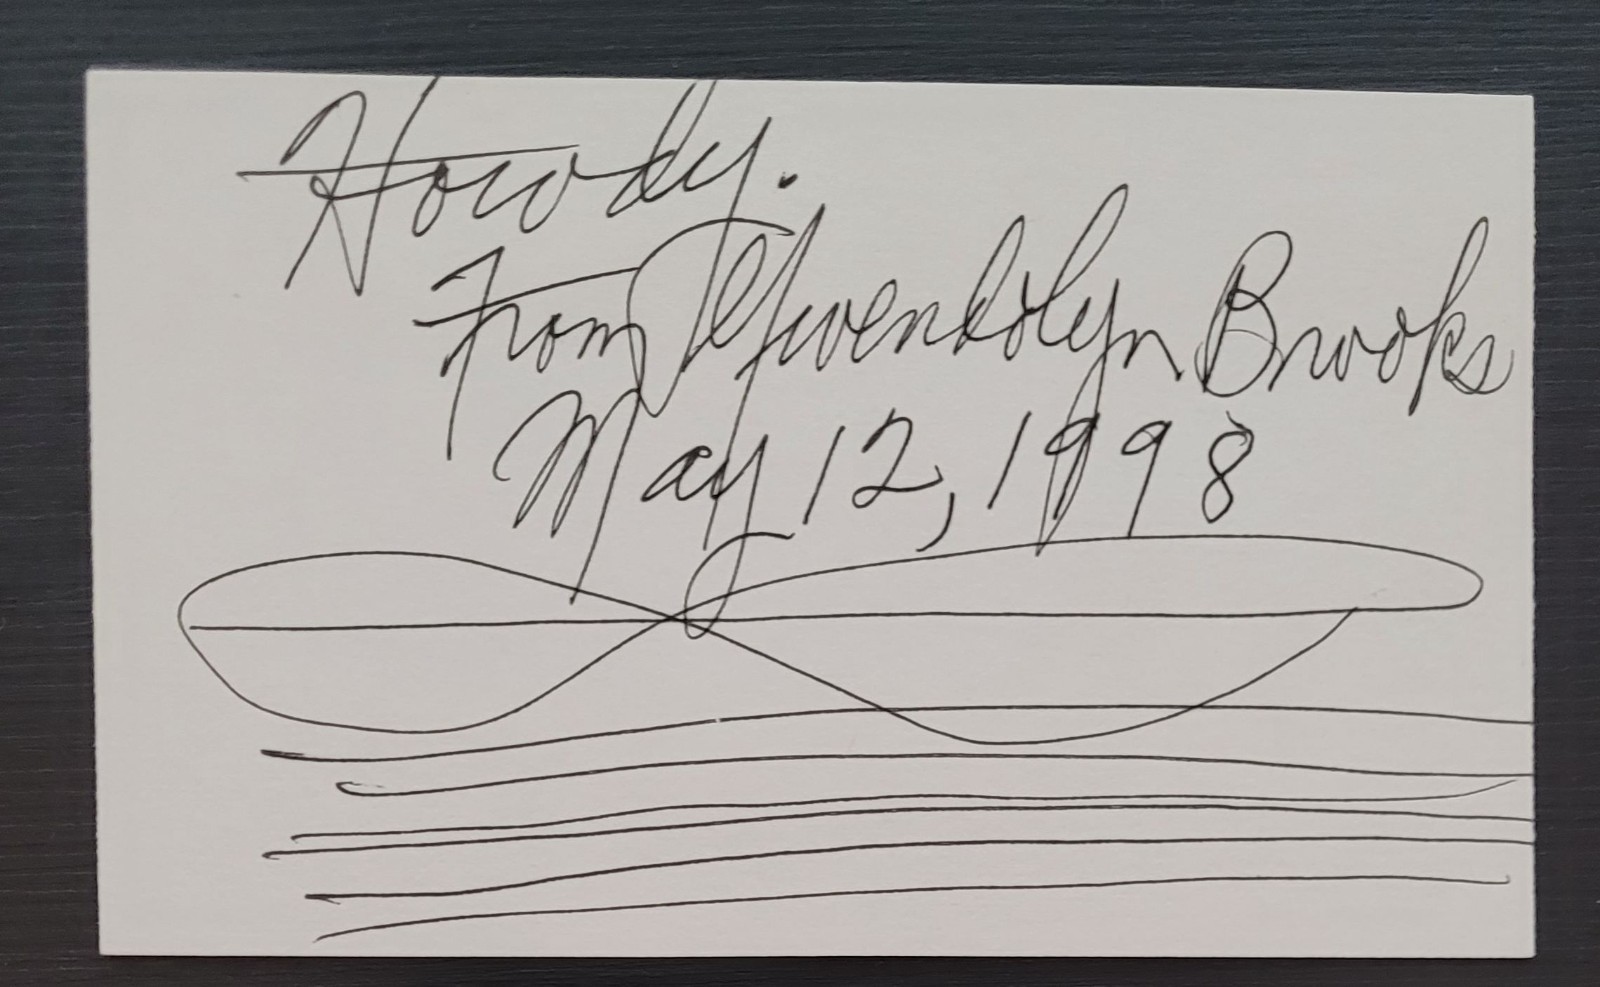 Howdy.
From Gwendolyn Brooks
May 12, 1998